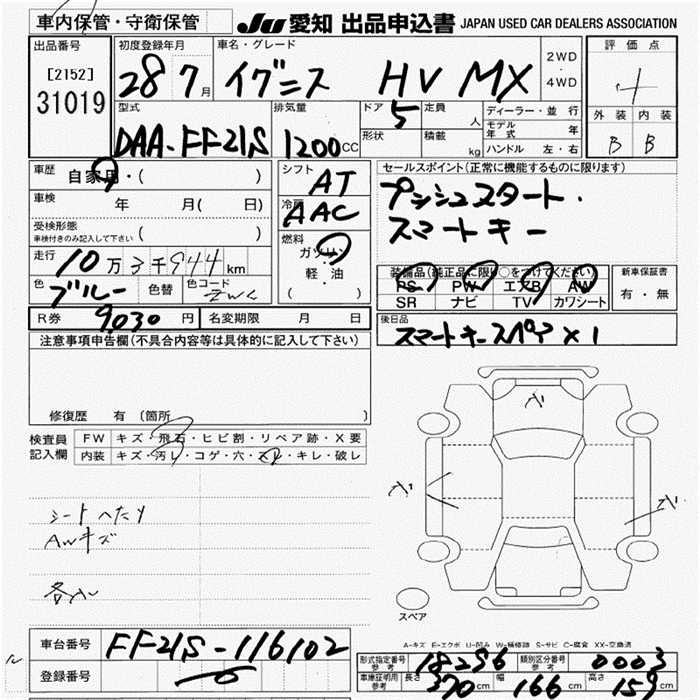 車内保管・守衛保管
JU 愛知 出品申込書 JAPAN USED CAR DEALERS ASSOCIATION
出品番号
[2152]
31019
初度登録年月
28 7月
車名・グレード
イグニス HV MX
2WD
・
4WD
評価点
4
外装 内装
B B
型式
DAA-FF21S
排気量
1200cc
ドア 5
形状
定員 人
積載 kg
ディーラー・並行
モデル年式 年
ハンドル 左・右
車歴
自家用・( )
車検
年 月( 日)
受検形態
車検付きのみ記入して下さい ( )
走行
10万3千944km
色 ブルー 色替 色コード ZWG
R券 9,030円 名変期限 月 日
シフト
AT
冷房
AAC
燃料
ガソリン
軽・油
( )
セールスポイント(正常に機能するものに限ります)
プッシュスタート・
スマートキー
装備品(純正品に限り○をつけてください)
PS PW エアB AW
SR ナビ TV カワシート
新車保証書
有・無
後日品
スマートキースペア×1
注意事項申告欄(不具合内容等は具体的に記入して下さい)
修復歴 有(箇所
検査員
記入欄
FW キズ・飛石・ヒビ割・リペア跡・X要
内装 キズ・汚レ・コゲ・穴・スレ・キレ・破レ
シートへたり
AWキズ
各A
A1
A1
A1
スペア
A-キズ E-エクボ U-凹み W-補修跡 S-サビ C-腐食 XX-交換済
車台番号
FF21S-116102
登録番号
形式指定番号 参考 18296
類別区分番号 参考 0003
車庫証明用 参考 長さ 370cm 幅 166cm 高さ 159cm